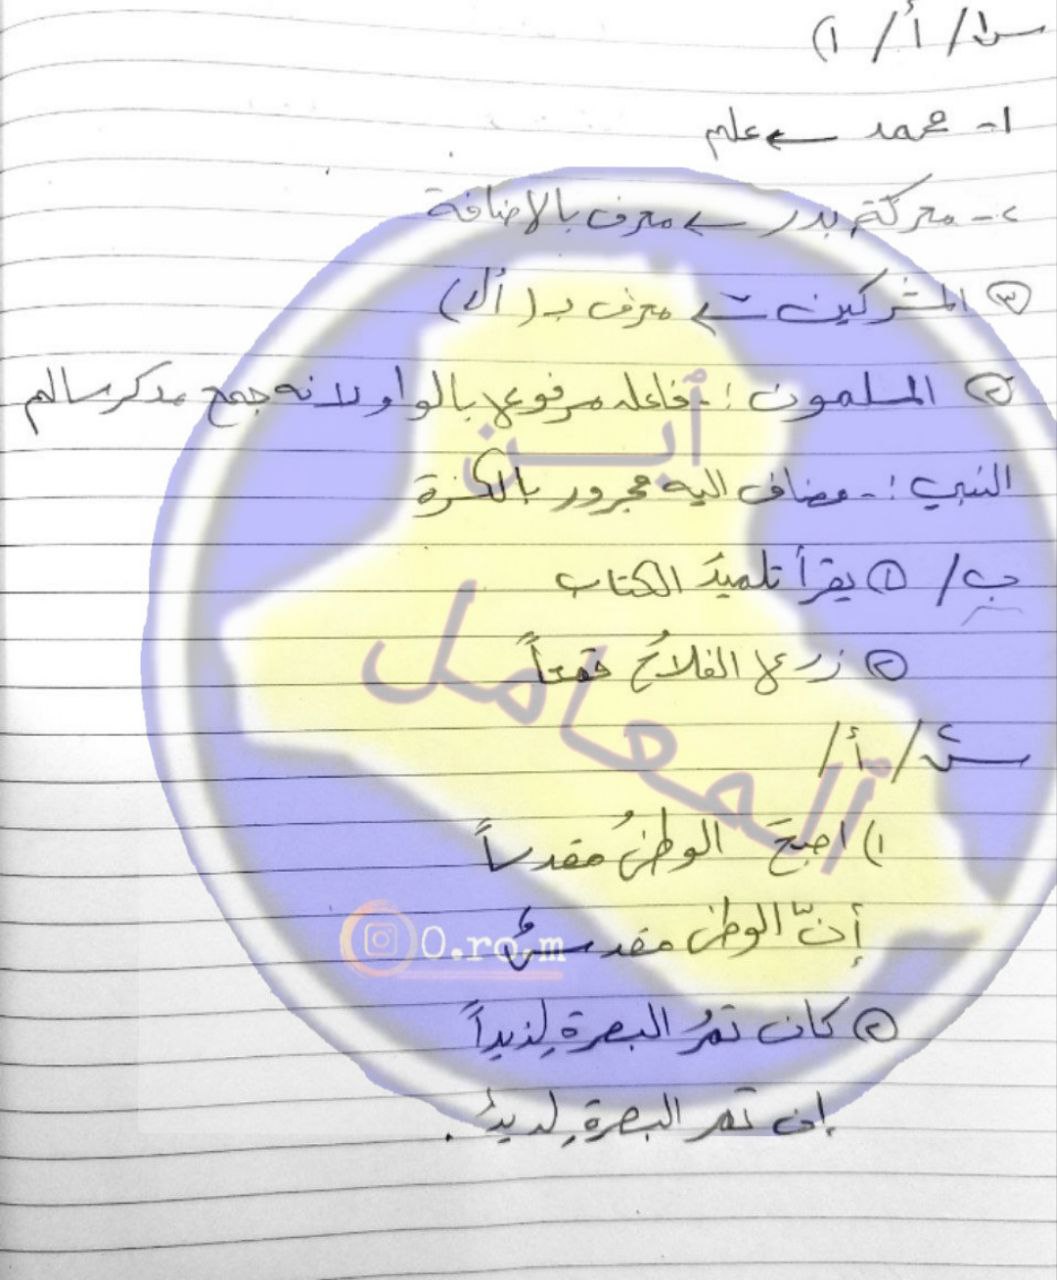 س١/ أ/ ١)
١- محمد ← علم
٢- معركة بدر ← معرف بالاضافة
٣ المشركين ← معرف بـ (أل)
٢ المسلمون :- فاعل مرفوع بالواو لانه جمع مذكر سالم
النبي :- مضاف اليه مجرور بالكسرة
ب/ ١ يقرأ تلميذُ الكتاب
٢ زرع الفلاحُ قمحاً
س٢/ أ/
١) اصبحَ الوطنُ مقدساً
إنّ الوطن مقدسٌ
٢ كان تمرُ البصرةِ لذيذاً
إن تمر البصرةِ لذيذٌ .
أبن
المعامل
O.ro.m